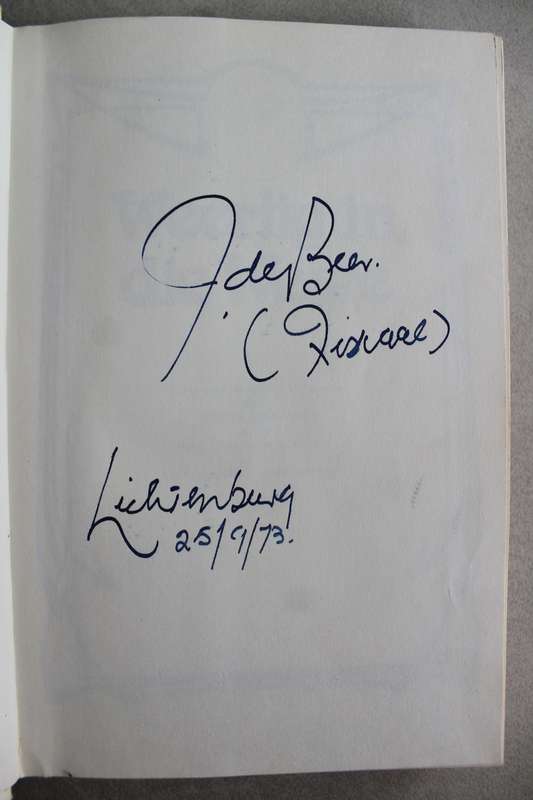 J. de Beer.
(Fiskaal)
Lichtenburg
25/9/73.